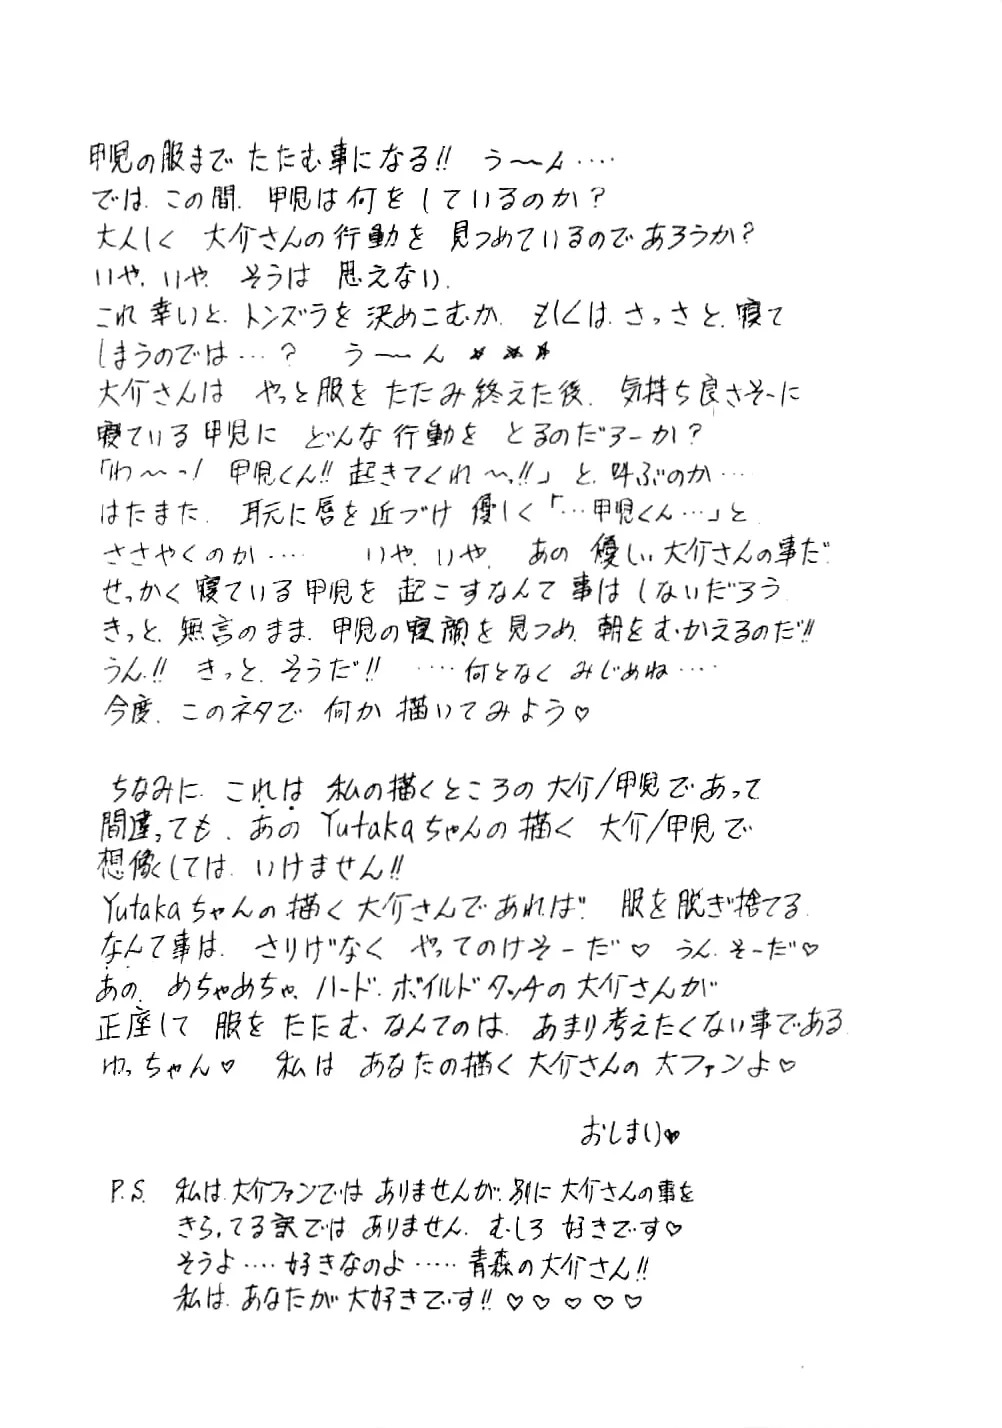 甲児の服まで たたむ事になる!! う〜〜ん‥‥
では、この間、甲児は何をしているのか?
大人しく 大介さんの行動を 見つめているのであろうか?
いや、いや、そうは 思えない、
これ幸いと、トンズラを決めこむか、もしくは、さっさと、寝て
しまうのでは…? う〜〜ん ★★★
大介さんは やっと服を たたみ終えた後、気持ち良さそーに
寝ている甲児に どんな行動を とるのだろーか?
「わ〜〜っ! 甲児くん!! 起きてくれ〜っ!!」と、叫ぶのか…
はたまた、耳元に唇を近づけ 優しく「…甲児くん…」と、
ささやくのか‥‥ いや、いや、あの 優しい大介さんの事だ、
せっかく寝ている甲児を 起こすなんて事は しないだろう、
きっと、無言のまま、甲児の寝顔を見つめ、朝をむかえるのだ!!
うん!! きっと、そうだ!! ‥‥何となく みじめね‥‥
今度、このネタで 何か 描いてみよう♡
ちなみに、これは 私の描くところの 大介/甲児であって
間違っても、あの Yutakaちゃんの描く 大介/甲児で
想像しては、いけません!!
Yutakaちゃんの描く大介さんであれば、服を脱ぎ捨てる
なんて事は、さりげなく やってのけそーだ♡ うん、そーだ♡
あの、めちゃめちゃ、ハード、ボイルドタッチの大介さんが
正座して 服を たたむ、なんてのは、あまり考えたくない事である、
ゆっちゃん♡ 私は あなたの描く大介さんの 大ファンよ♡
おしまい♥
P.S. 私は、大介ファンでは ありませんが、別に 大介さんの事を
きらってる訳では ありません、むしろ 好きです♡
そうよ‥‥好きなのよ‥‥‥青森の大介さん!!
私は、あなたが大好きです!! ♡♡♡♡♡